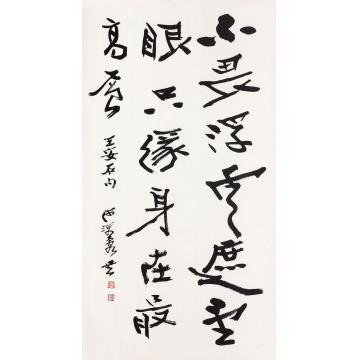 不畏浮雲遮望
眼只緣身在最
高層 王安石句